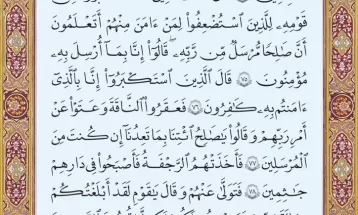 قَوْمِهِۦ لِلَّذِينَ ٱسْتُضْعِفُوا۟ لِمَنْ ءَامَنَ مِنْهُمْ أَتَعْلَمُونَ
أَنَّ صَٰلِحًا مُّرْسَلٌ مِّن رَّبِّهِۦ ۚ قَالُوٓا۟ إِنَّا بِمَآ أُرْسِلَ بِهِۦ
مُؤْمِنُونَ ٧٥ قَالَ ٱلَّذِينَ ٱسْتَكْبَرُوٓا۟ إِنَّا بِٱلَّذِىٓ
ءَامَنتُم بِهِۦ كَٰفِرُونَ ٧٦ فَعَقَرُوا۟ ٱلنَّاقَةَ وَعَتَوْا۟ عَنْ
أَمْرِ رَبِّهِمْ وَقَالُوا۟ يَٰصَٰلِحُ ٱئْتِنَا بِمَا تَعِدُنَآ إِن كُنتَ مِنَ
ٱلْمُرْسَلِينَ ٧٧ فَأَخَذَتْهُمُ ٱلرَّجْفَةُ فَأَصْبَحُوا۟ فِى دَارِهِمْ
جَٰثِمِينَ ٧٨ فَتَوَلَّىٰ عَنْهُمْ وَقَالَ يَٰقَوْمِ لَقَدْ أَبْلَغْتُكُمْ